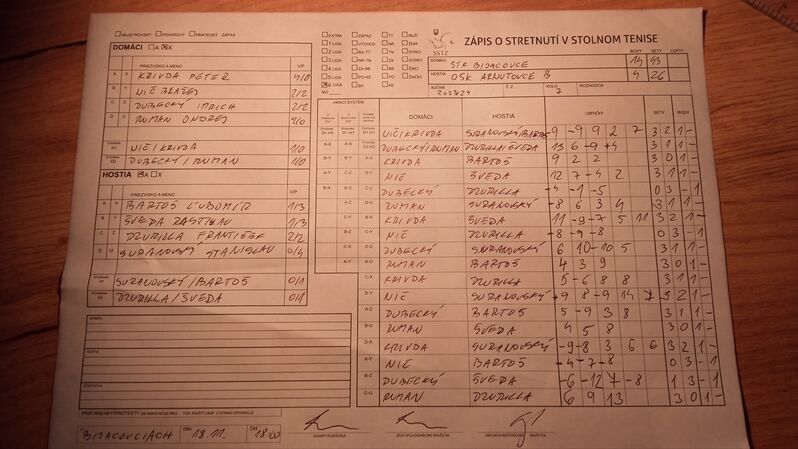 MAJSTROVSKÝ POHÁROVÝ PRIATEĽSKÝ ZÁPAS
DOMÁCI A X
PRIEZVISKO A MENO V/P
A X KRIVDA PETER 4/0
B Y NIČ BLAŽEJ 2/2
C Z DUBECKÝ IMRICH 2/2
D U RUMAN ONDREJ
NIČ/KRIVDA 1/0
DUBECKÝ/RUMAN 1/0
HOSTIA A X
PRIEZVISKO A MENO V/P
BARTOŠ ĽUBOMÍR 1/3
ŠVEDA RASTISLAV 1/3
DZURILLA FRANTIŠEK 2/2
SURANOVSKÝ STANISLAV 0/4
SURANOVSKÝ/BARTOŠ 0/1
DZURILLA/ŠVEDA 0/1
BIJACOVCIACH DŇA 18.11. ČAS 18:00
EXTRA ZÁPAD TT MUŽI
1 LIGA VÝCHOD NR ŽENY
2 LIGA
3 LIGA
4 LIGA
5 LIGA
6 LIGA
SSTZ
ZÁPIS O STRETNUTÍ V STOLNOM TENISE
BODY SETY LOPTY
DOMÁCI STK BIJACOVCE 14 43
HOSTIA OŠK ARNUTOVCE B 4 26
ROČNÍK 2023/24 Č.Z. KOLO 7 ROZHODCA
HRACÍ SYSTÉM DOMÁCI HOSTIA LOPTIČKY SETY BODY
NIČ/KRIVDA SURANOVSKÝ/BARTOŠ -9 -9 9 2 7 3 2 1 -
DUBECKÝ/RUMAN DZURILLA/ŠVEDA 13 6 -9 3 1 1 -
KRIVDA BARTOŠ 9 2 2 3 0 1 -
NIČ ŠVEDA 12 7 -4 2 3 1 1 -
DUBECKÝ DZURILLA -4 -1 -5 0 3 - 1
RUMAN SURANOVSKÝ -8 6 3 4 3 1 1 -
KRIVDA ŠVEDA 11 -9 -7 5 11 3 2 1 -
NIČ DZURILLA -8 -9 -8 0 3 - 1
DUBECKÝ SURANOVSKÝ 6 10 -10 5 3 1 1 -
RUMAN BARTOŠ 4 3 9 3 0 1 -
KRIVDA DZURILLA 5 -6 8 8 3 1 1 -
NIČ SURANOVSKÝ -9 8 -9 14 7 2 1 -
DUBECKÝ BARTOŠ 5 -9 3 8 3 1 1 -
RUMAN ŠVEDA 4 5 8 3 0 1 -
KRIVDA SURANOVSKÝ -9 -8 3 6 6 3 2 1 -
NIČ BARTOŠ -4 -7 -8 0 3 - 1
DUBECKÝ ŠVEDA -6 -12 7 -8 1 3 - 1
RUMAN DZURILLA 6 9 13 3 0 1 -
HLAVNÝ ROZHODCA ZÁSTUPCA DOMÁCEHO DRUŽSTVA ZÁSTUPCA HOSŤUJÚCEHO DRUŽSTVA